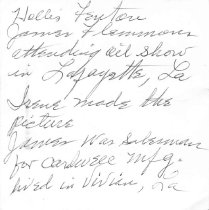 Hollis Feyton
James Flemmons
attending oil show
in Lafayette, La
Irene made the
picture
James Was Salesman
for Cardwell Mfg.
lived in Vivian, La